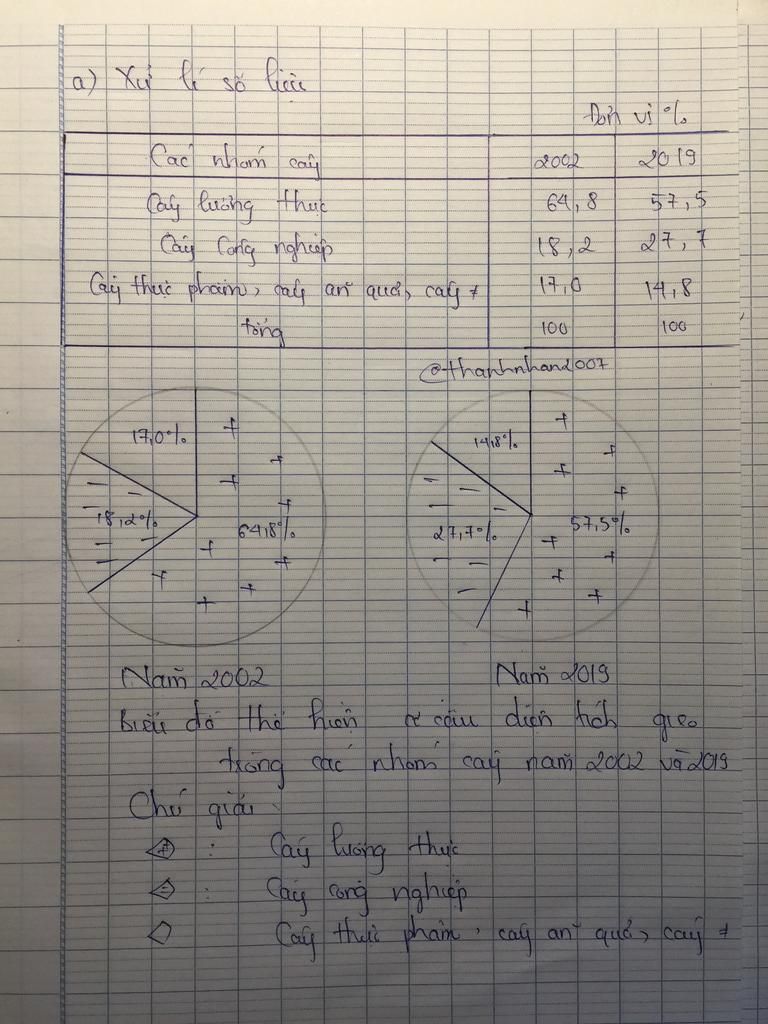 a) Xử lí số liệu
Đơn vị %
Các nhóm cây 2002 2019
Cây lương thực 64,8 57,5
Cây Công nghiệp 18,2 27,7
Cây thực phẩm, cây ăn quả, cây ≠ 17,0 14,8
tổng 100 100
@thanhnhan2007
17,0% 14,8%
18,2% 64,8% 27,7% 57,5%
Năm 2002 Năm 2019
Biểu đồ thể hiện cơ cấu diện tích gieo
trồng các nhóm cây năm 2002 và 2019
Chú giải:
+ : Cây lương thực
- : Cây công nghiệp
Cây thực phẩm, cây ăn quả, cây ≠